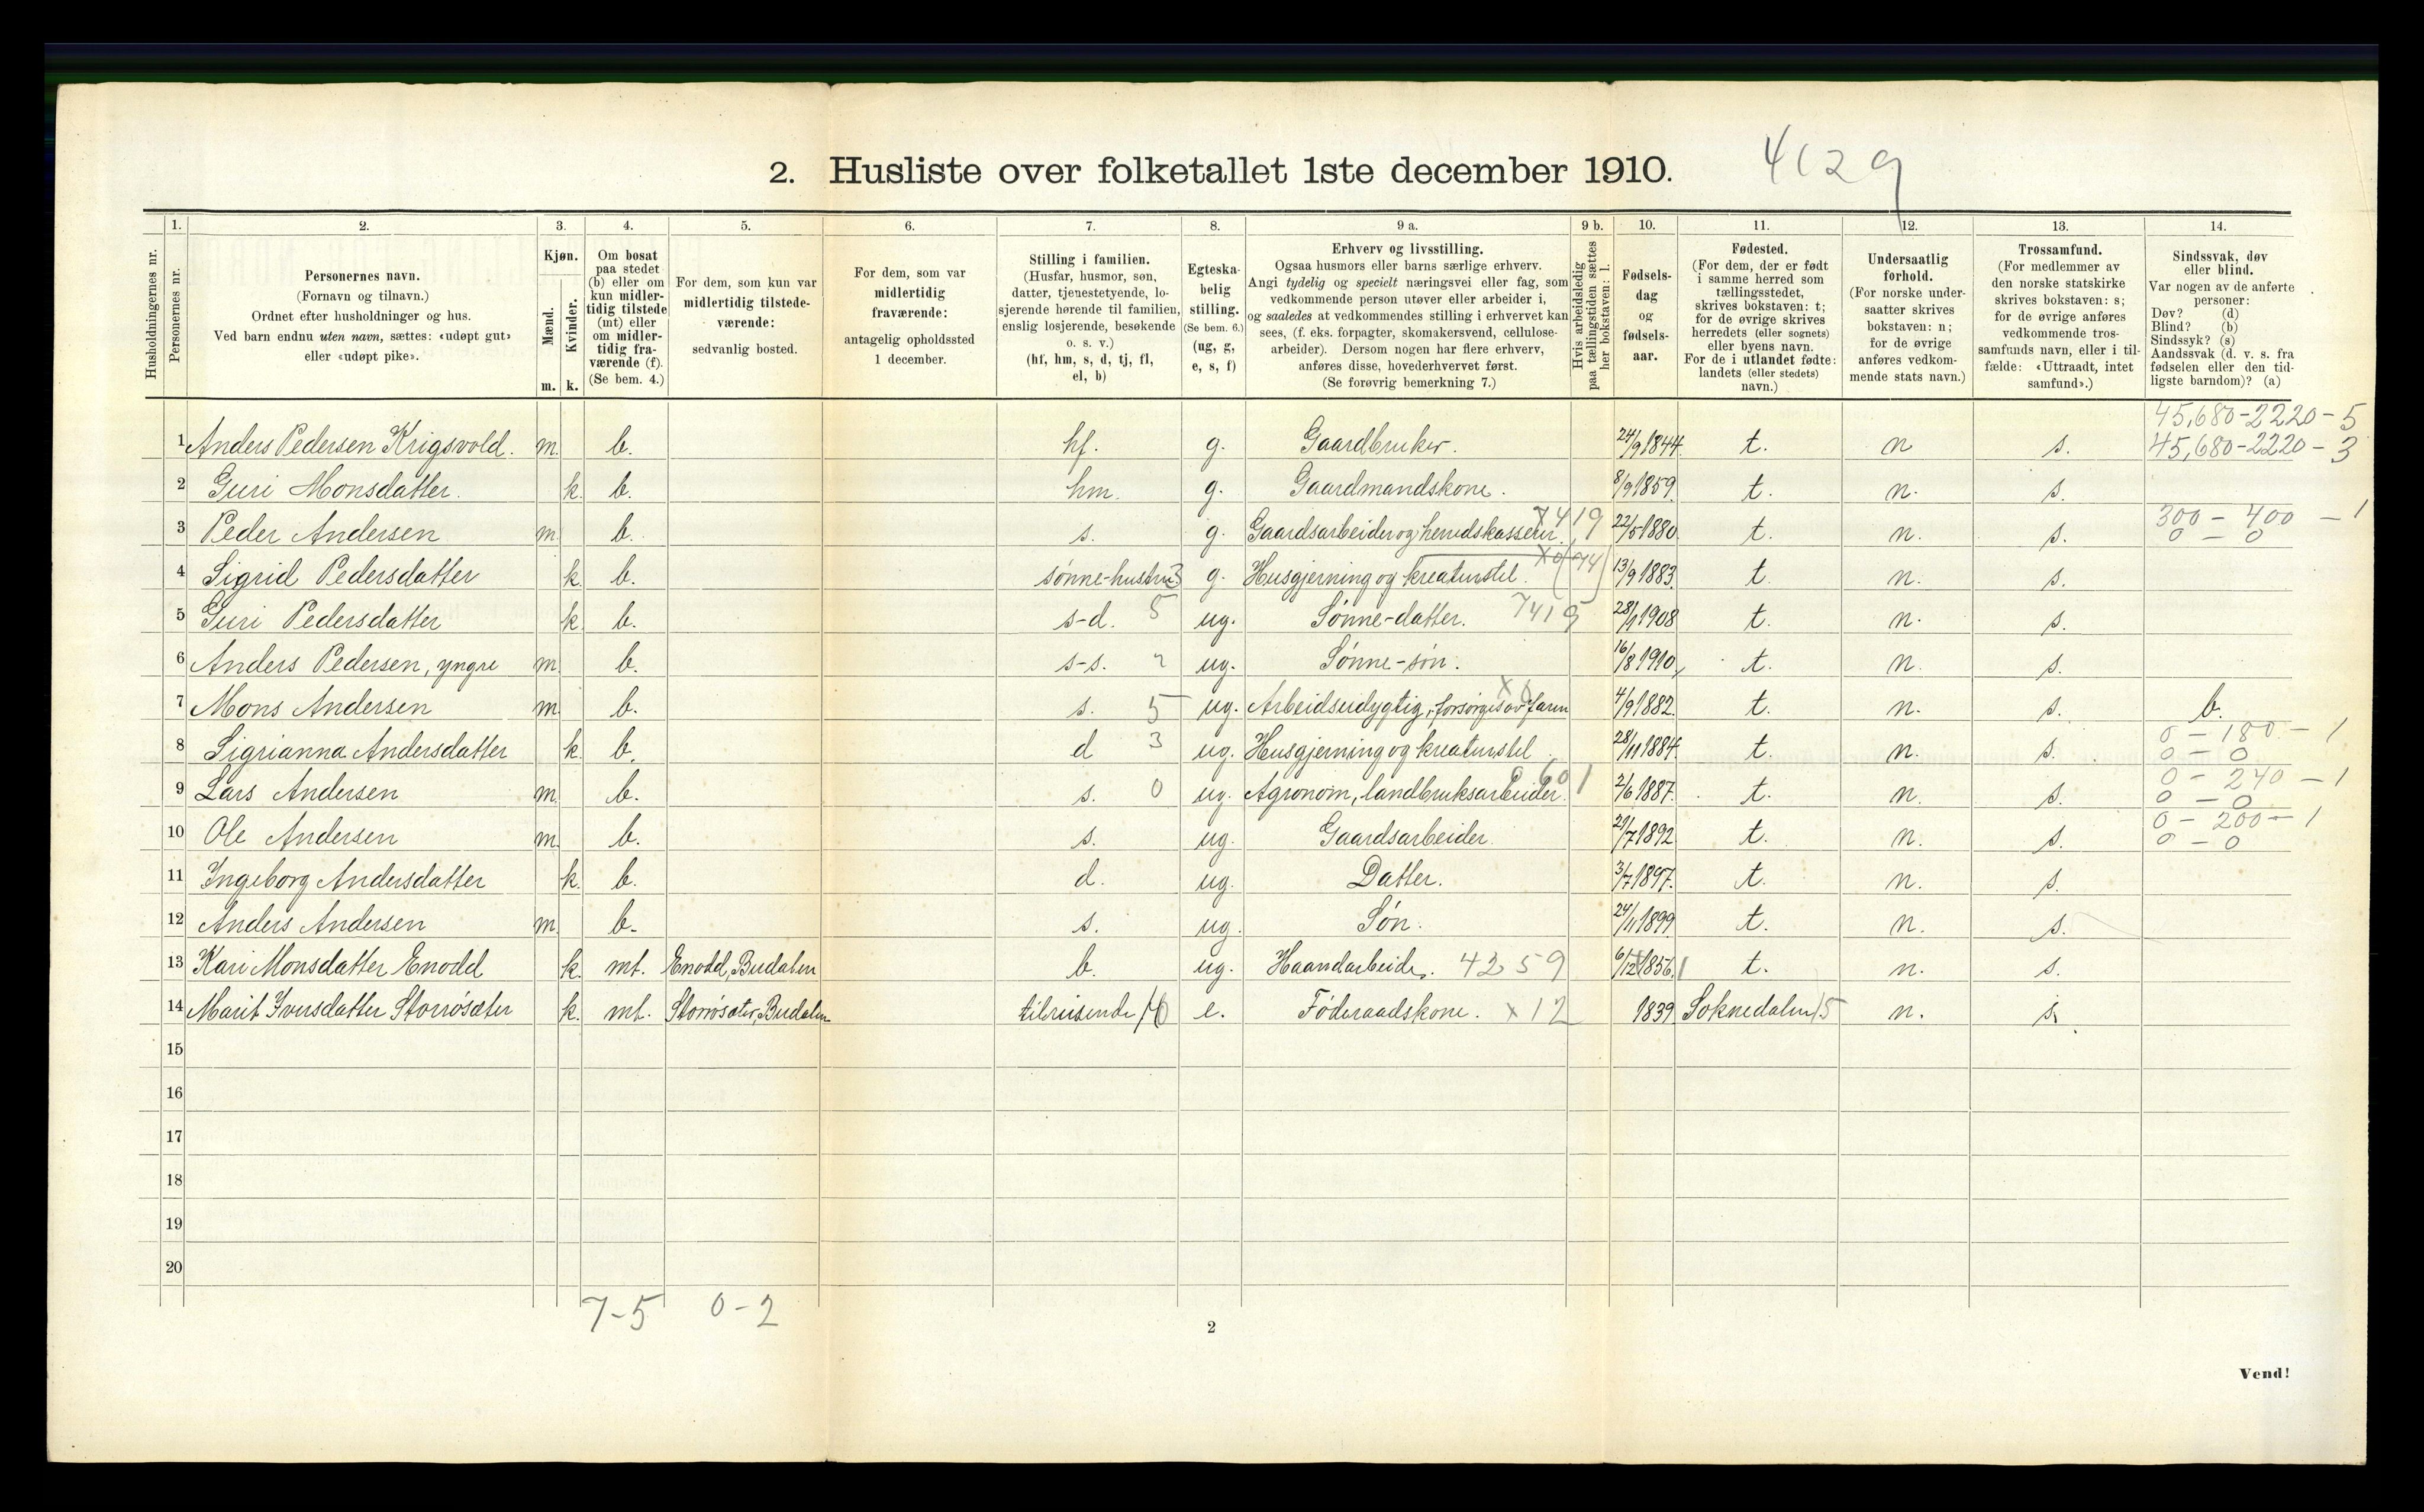 2. Husliste over folketallet 1ste december 1910. 4129
1. 2. 3. 4. 5. 6. 7. 8. 9 a. 9 b. 10. 11. 12. 13. 14.
Husholdningernes nr.
Personernes nr.
Personernes navn.
(Fornavn og tilnavn.)
Ordnet efter husholdninger og hus.
Ved barn endnu uten navn, sættes: «udøpt gut»
eller «udøpt pike».
Kjøn.
Mænd.
Kvinder.
m. k.
Om bosat
paa stedet
(b) eller om
kun midler-
tidig tilstede
(mt) eller
om midler-
tidig fra-
værende (f).
(Se bem. 4.)
For dem, som kun var
midlertidig tilstede-
værende:
sedvanlig bosted.
For dem, som var
midlertidig
fraværende:
antagelig opholdssted
1 december.
Stilling i familien.
(Husfar, husmor, søn,
datter, tjenestetyende, lo-
sjerende hørende til familien,
enslig losjerende, besøkende
o. s. v.)
(hf, hm, s, d, tj, fl,
el, b)
Egteska-
belig
stilling.
(Se bem. 6.)
(ug, g,
e, s, f)
Erhverv og livsstilling.
Ogsaa husmors eller barns særlige erhverv.
Angi tydelig og specielt næringsvei eller fag, som
vedkommende person utøver eller arbeider i,
og saaledes at vedkommendes stilling i erhvervet kan
sees, (f. eks. forpagter, skomakersvend, cellulose-
arbeider). Dersom nogen har flere erhverv,
anføres disse, hovederhvervet først.
(Se forøvrig bemerkning 7.)
Hvis arbeidsledig
paa tællingstiden sættes
her bokstaven: l.
Fødsels-
dag
og
fødsels-
aar.
Fødested.
(For dem, der er født
i samme herred som
tællingsstedet,
skrives bokstaven: t;
for de øvrige skrives
herredets (eller sognets)
eller byens navn.
For de i utlandet fødte:
landets (eller stedets)
navn.)
Undersaatlig
forhold.
(For norske under-
saatter skrives
bokstaven: n;
for de øvrige
anføres vedkom-
mende stats navn.)
Trossamfund.
(For medlemmer av
den norske statskirke
skrives bokstaven: s;
for de øvrige anføres
vedkommende tros-
samfunds navn, eller i til-
fælde: «Uttraadt, intet
samfund».)
Sindssvak, døv
eller blind.
Var nogen av de anførte
personer:
Døv? (d)
Blind? (b)
Sindssyk? (s)
Aandssvak (d. v. s. fra
fødselen eller den tid-
ligste barndom)? (a)
45,680-2220-5
1 Anders Pedersen Krigsvold. m. b. hf. g. Gaardbruker. 24/9 1844. t. n s. 45,680-2220-3
2 Guri Monsdatter. k. b. hm. g. Gaardmandskone. 8/9 1859. t. n. s.
300 - 400 - 1
3 Peder Andersen m. b. s. g. Gaardsarbeider og herredskasserer. 7419 22/5 1880. t. n. s. 0 - 0
4 Sigrid Pedersdatter k. b. sønne-hustru 3 g. Husgjerning og kreaturstel. x0(74) 13/9 1883. t. n. s.
5 Guri Pedersdatter k. b. s-d. 5 ug. Sønne-datter. 7419 28/1 1908 t. n. s.
6 Anders Pedersen, yngre m. b. s-s. 2 ug. Sønne-søn. 16/8 1910, t. n. s.
7 Mons Andersen m. b. s. 5 ug. Arbeidsudygtig, forsørges av faren x6 4/9 1882. t. n. s. b.
0 - 180 - 1
8 Sigrianna Andersdatter k. b. d 3 ug. Husgjerning og kreaturstel 28/11 1884. t. n. s. 0 - 0
0 - 240 - 1
9 Lars Andersen m. b. s. 0 ug. Agronom, landbruksarbeider. 2/6 1887. t. n. s. 0 - 0
0 - 200 - 1
10 Ole Andersen m. b. s. ug. Gaardsarbeider 29/7 1892 t. n. s. 0 - 0
11 Ingeborg Andersdatter k. b. d. ug. Datter. 3/7 1897. t. n. s.
12 Anders Andersen m. b. s. ug. Søn. 24/11 1899. t. n. s.
13 Kari Monsdatter Enodd k. mt. Enodd, Budalen b. ug. Haandarbeide. 4259 6/12 1856. t. n. s.
14 Marit Iversdatter Storrøsæter k. mt. Storrøsæter, Budalen tilreisende e. Føderaadskone. x12 1839 Soknedalen 15 n. s.
15
16
17
18
19
20
7-5 0-2
2
Vend!